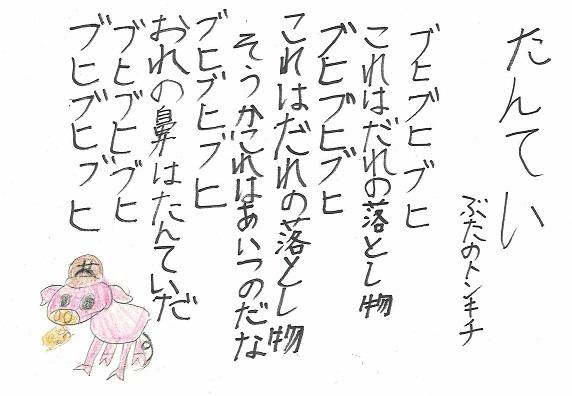 たんてい
ぶたのトンキチ
ブヒブヒブヒ
これはだれの落とし物
ブヒブヒブヒ
これはだれの落とし物
そうかこれはあいつのだな
ブヒブヒブヒ
おれの鼻はたんていだ
ブヒブヒブヒ
ブヒブヒブヒ